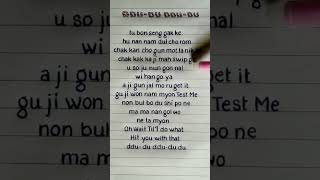 DDU-DU DDU-DU
tu bon seng gak ke
hu nan nam dul cho rom
chak kan cho gun mot ta ni
chak kak ka ji mah swip ge
u so ju nun gon nal
wi han go ya
a ji gun jal mo ru get ji
gu ji won nam myon Test Me
non bul bo du shi po ne
ma ma nan gol wo
ne ta myon
Oh wait Til'I do what
Hit you with that
ddu- du ddu-du du
wi
a
gu ji
no
ma